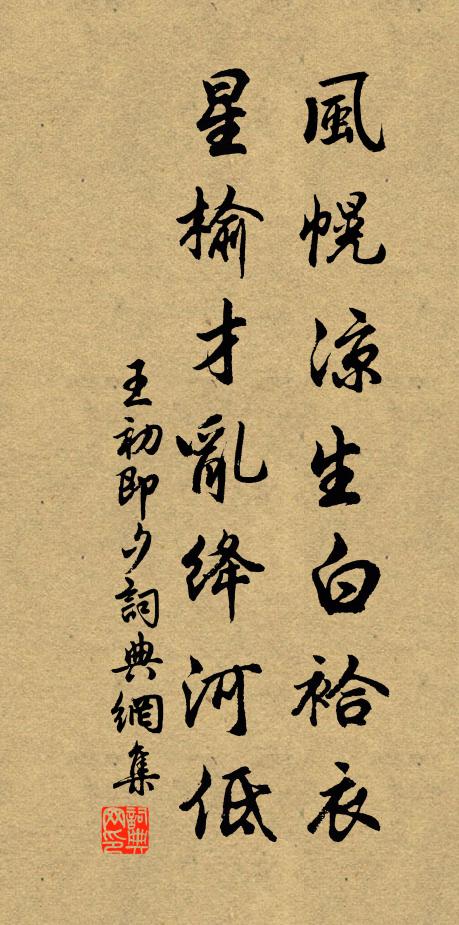 風幌涼生白袷衣
星榆才亂絳河低
王初即夕詞典網集
詞典網印